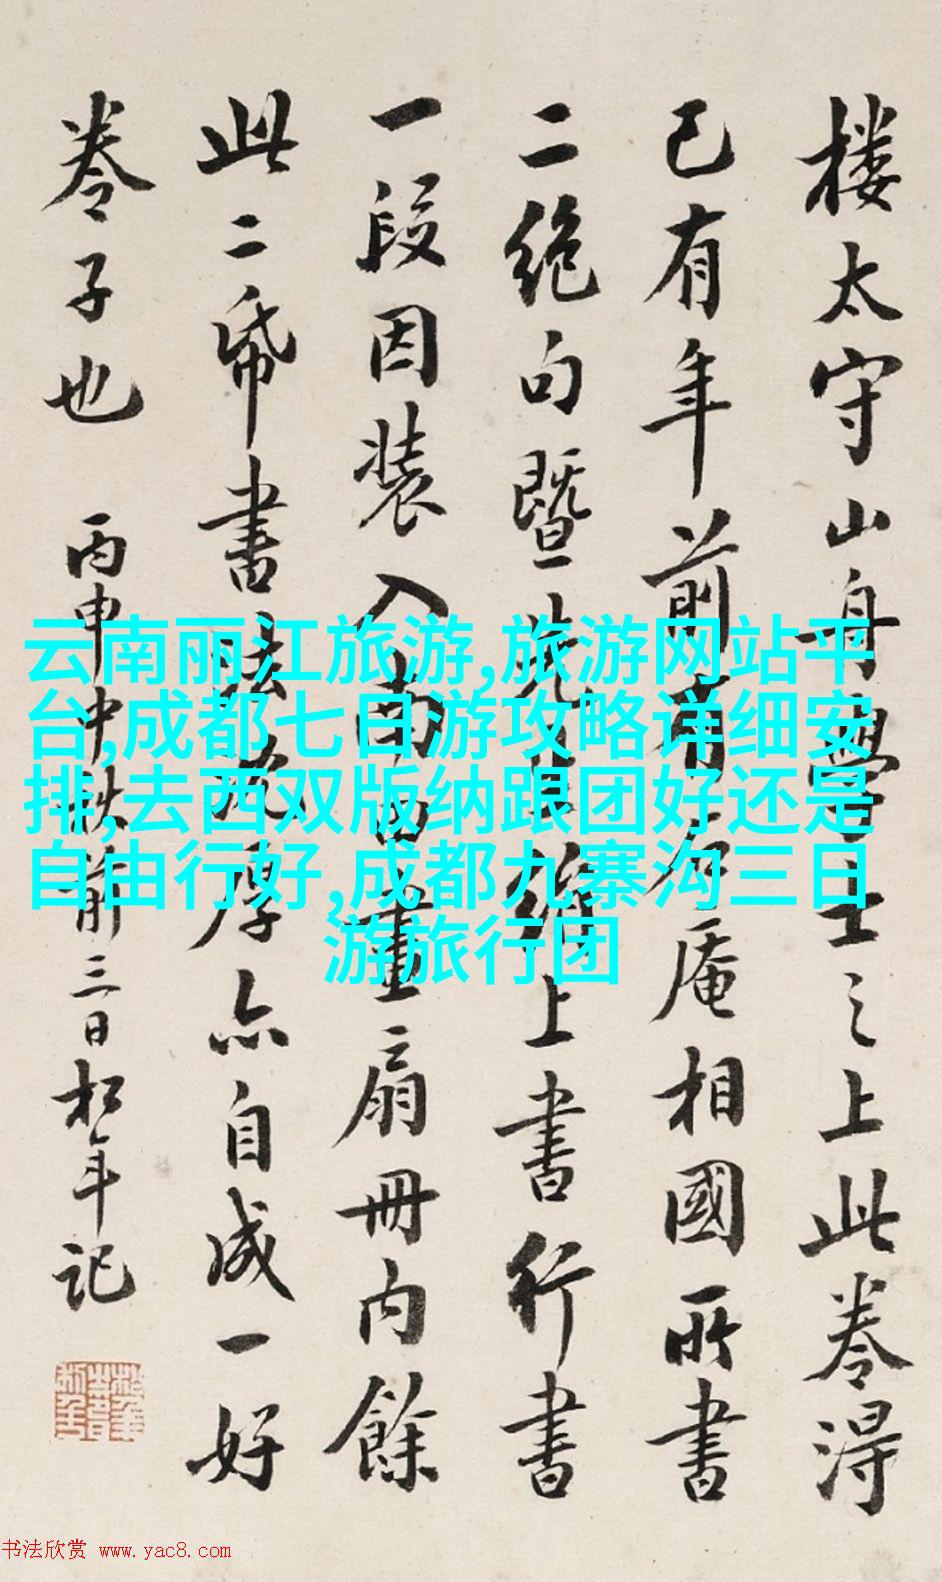 楼太守山舟學士之上此卷得
已有年前有庵相國所書
二絕句暨上書行書
一段因装入南田畫扇冊内餘
此二帋書法沉厚亦自成一好
卷子也 丙申中秋前三日松年记
云南丽江旅游,旅游网站平
台,成都七日游攻略详细安
排,去西双版纳跟团好还是
自由行好,成都九寨沟三日
游旅行团
书法欣赏 www.yac8.com